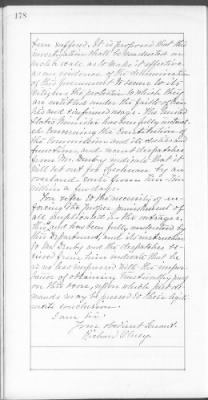 178
been suffered. It is proposed that this
investigation shall be conducted on
such a scale as to make it effective
as an evidence of the determination
of this government to secure to its
citizens the protection to which they
are entitled under the faith of trea-
ties and usage. The United
States Minister has been fully instruct-
ed concerning the Constitution of
the Commission and its duties and
functions, and recent despatches
from Mr. Denby indicate that it
will set out for by an
overland route from Tien Tsin
within a few days.
You refer to the necessity of en-
forcing the proper punishment of
all implicated in the outrages.
This has been fully understood by
this Department, and its instructions
to Mr. Denby and the despatches re-
ceived from him indicate that he
is no less impressed with the impor-
tance of obtaining
on this score, upon which just de-
mands may be pressed to their legit-
imate conclusion.
I am Sir,
Your obedient Servant,
Richard Olney.